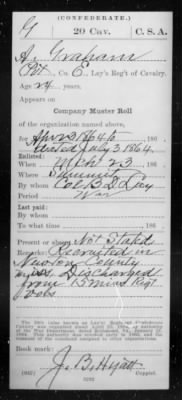 (CONFEDERATE.)
G 20 Cav. C.S.A.
A. Graham
Pvt, Co. E, Lay's Reg't of Cavalry.
Age 24 years.
Appears on
Company Muster Roll
of the organization named above,
for Apr 23 1864 to
Mustered July 3 1864.
Enlisted:
When Mch 23, 186
Where Summit
By whom Col B D Lay
Period War
Last paid:
By whom
To what time , 186
Present or absent Not Stated
Remarks: Recruited in
Newton County
Miss. Discharged
from 15 Miss Regt
Vols
Book mark:
J. B. Hyatt
(642) Copyist.